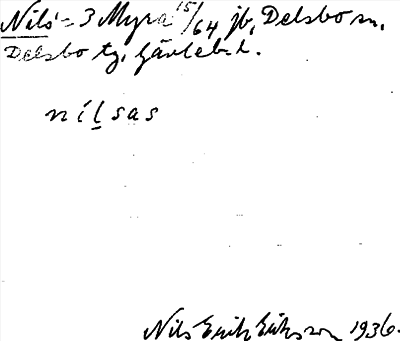 Nils = 3 Myra 15/64 jb, Delsbo sn,
Delsbo tg, Gävleb. l.
nílsas
Nils Erik Eriksson 1936.